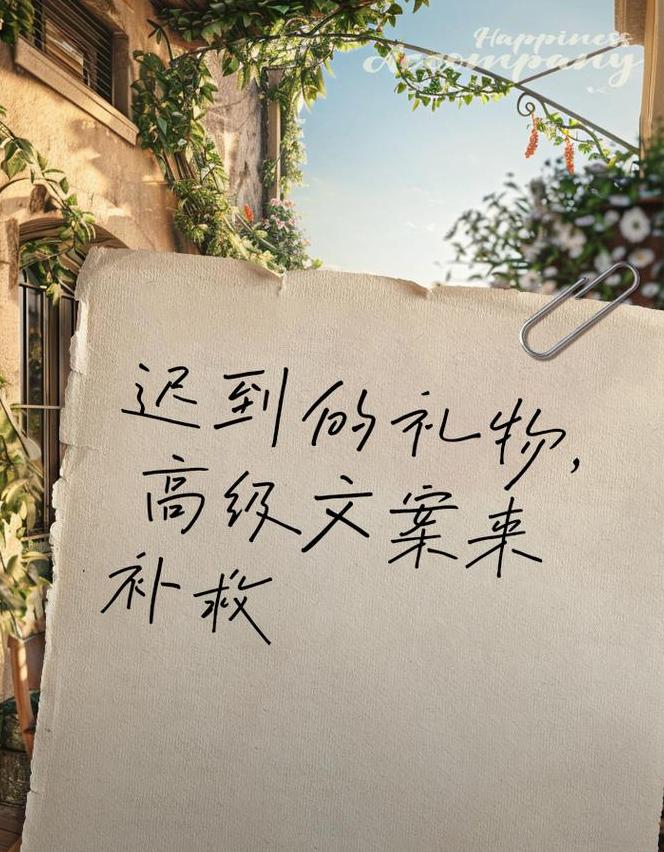 Happiness
Accompany
迟到的礼物,
高级文案来
补救